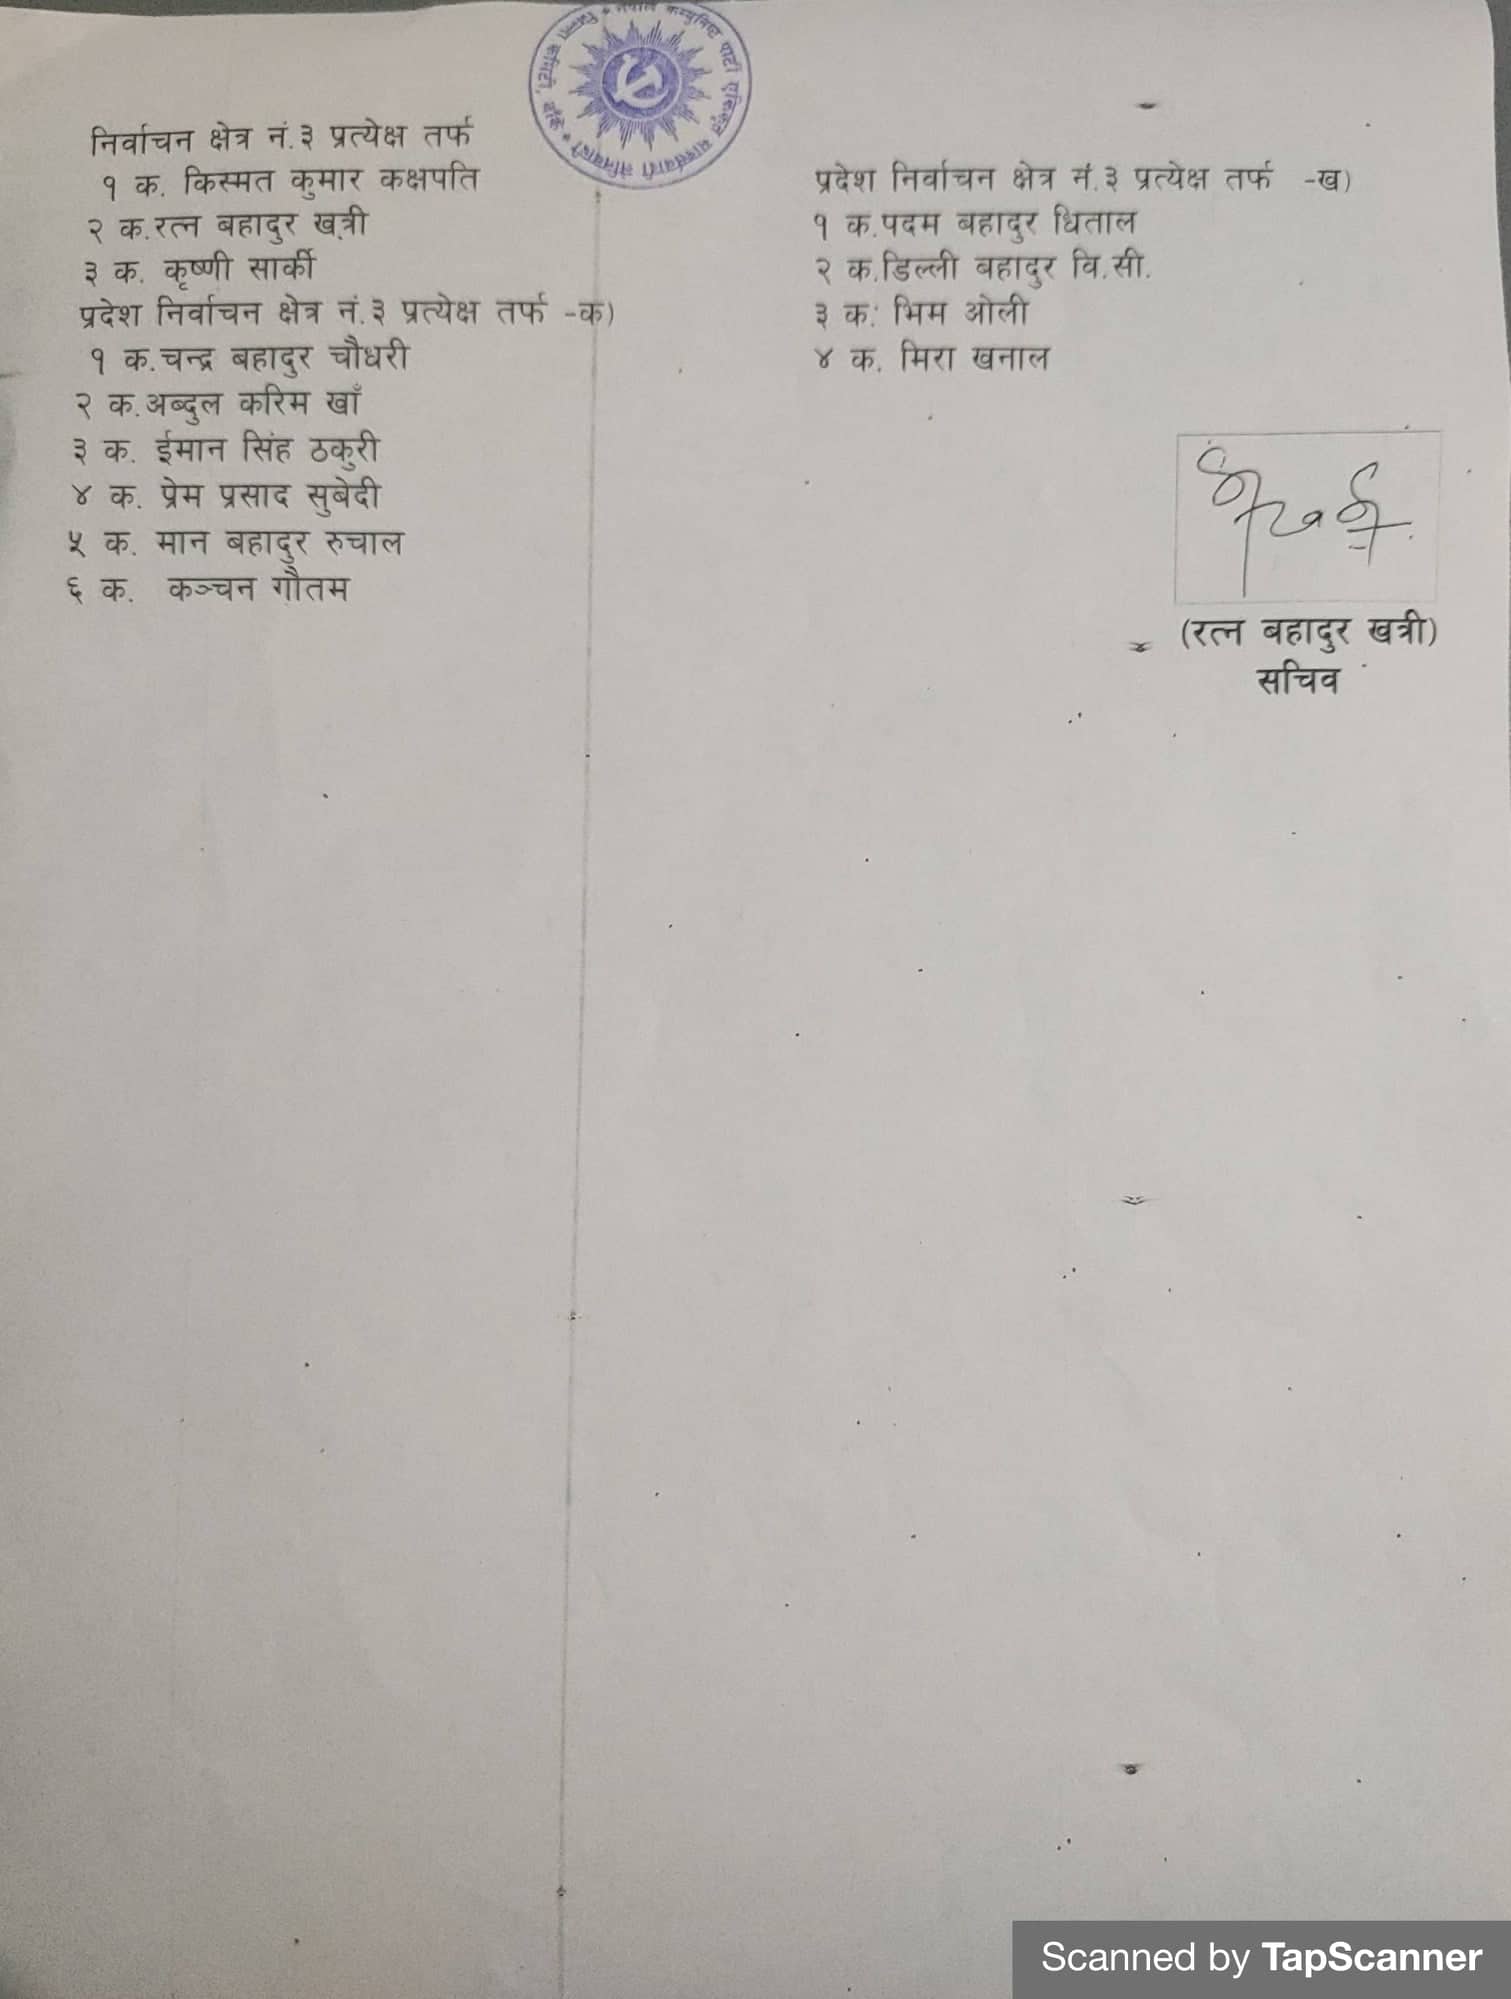 नेपाल कम्युनिष्ट पार्टी एकिकृत मार्क्सवादी लेनिनवादी * जिल्ला कमिटी, बाँके *
निर्वाचन क्षेत्र नं.३ प्रत्येक्ष तर्फ
१ क. किस्मत कुमार कक्षपति
२ क.रत्न बहादुर खत्री
३ क. कृष्णी सार्की
प्रदेश निर्वाचन क्षेत्र नं.३ प्रत्येक्ष तर्फ -क)
१ क.चन्द्र बहादुर चौधरी
२ क.अब्दुल करिम खाँ
३ क. ईमान सिंह ठकुरी
४ क. प्रेम प्रसाद सुबेदी
५ क. मान बहादुर रुचाल
६ क. कञ्चन गौतम
प्रदेश निर्वाचन क्षेत्र नं.३ प्रत्येक्ष तर्फ -ख)
१ क.पदम बहादुर धिताल
२ क.डिल्ली बहादुर वि.सी.
३ क. भिम ओली
४ क. मिरा खनाल
(रत्न बहादुर खत्री)
सचिव
Scanned by TapScanner